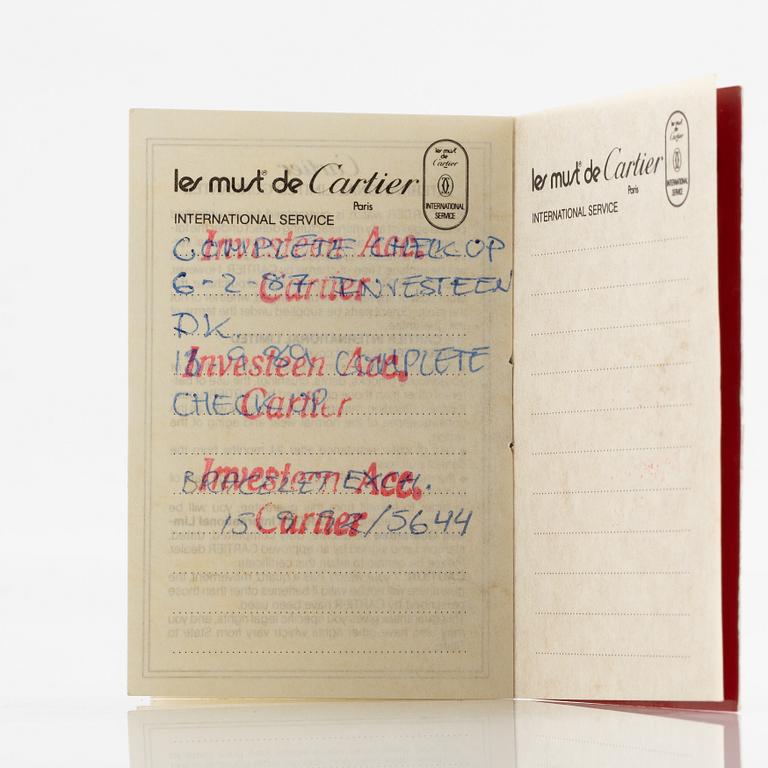 les must de Cartier
Paris
INTERNATIONAL SERVICE
les must de Cartier
INTERNATIONAL SERVICE
COMPLETE CHECK OP
Investeen Acc.
6-2-87 INVESTEEN
Cartier
DK.
COMPLETE
Investeen Acc.
CHECK OP
Cartier
BRACELET EXCH.
Investeen Acc.
15 9 92/5644
Cartier
les must de Cartier
Paris
INTERNATIONAL SERVICE
les must de Cartier
INTERNATIONAL SERVICE